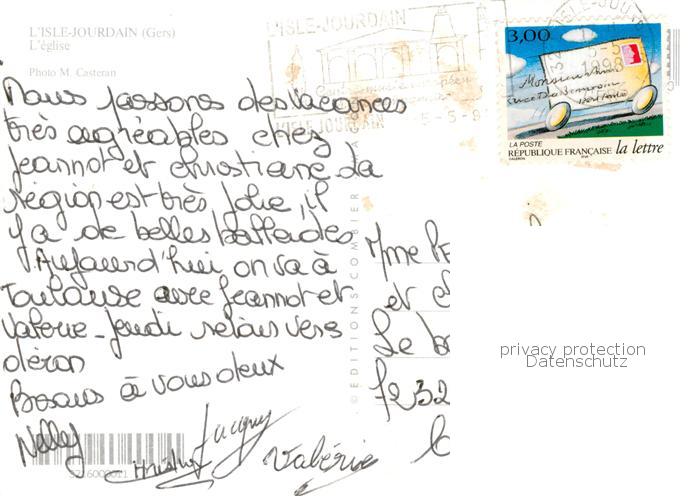 L'ISLE-JOURDAIN (Gers)
L'église
Photo M. Casteran
L'ISLE-JOURDAIN
L'ISLE-JOURDAIN
5-5-9
5-5
1998
3,00
Monsieur
LA POSTE
RÉPUBLIQUE FRANÇAISE la lettre
Nous passons des vacances
très agréables chez
Jeannot et Christiane la
région est très jolie, il
y a de belles ballades
Aujourd'hui, on va à
Toulouse avec Jeannot et
Valérie - Jeudi retour vers
oléron
Bisous à vous deux
Nelly
Valérie
ÉDITIONS COMBIER
Mme
et
Le
privacy protection
Datenschutz